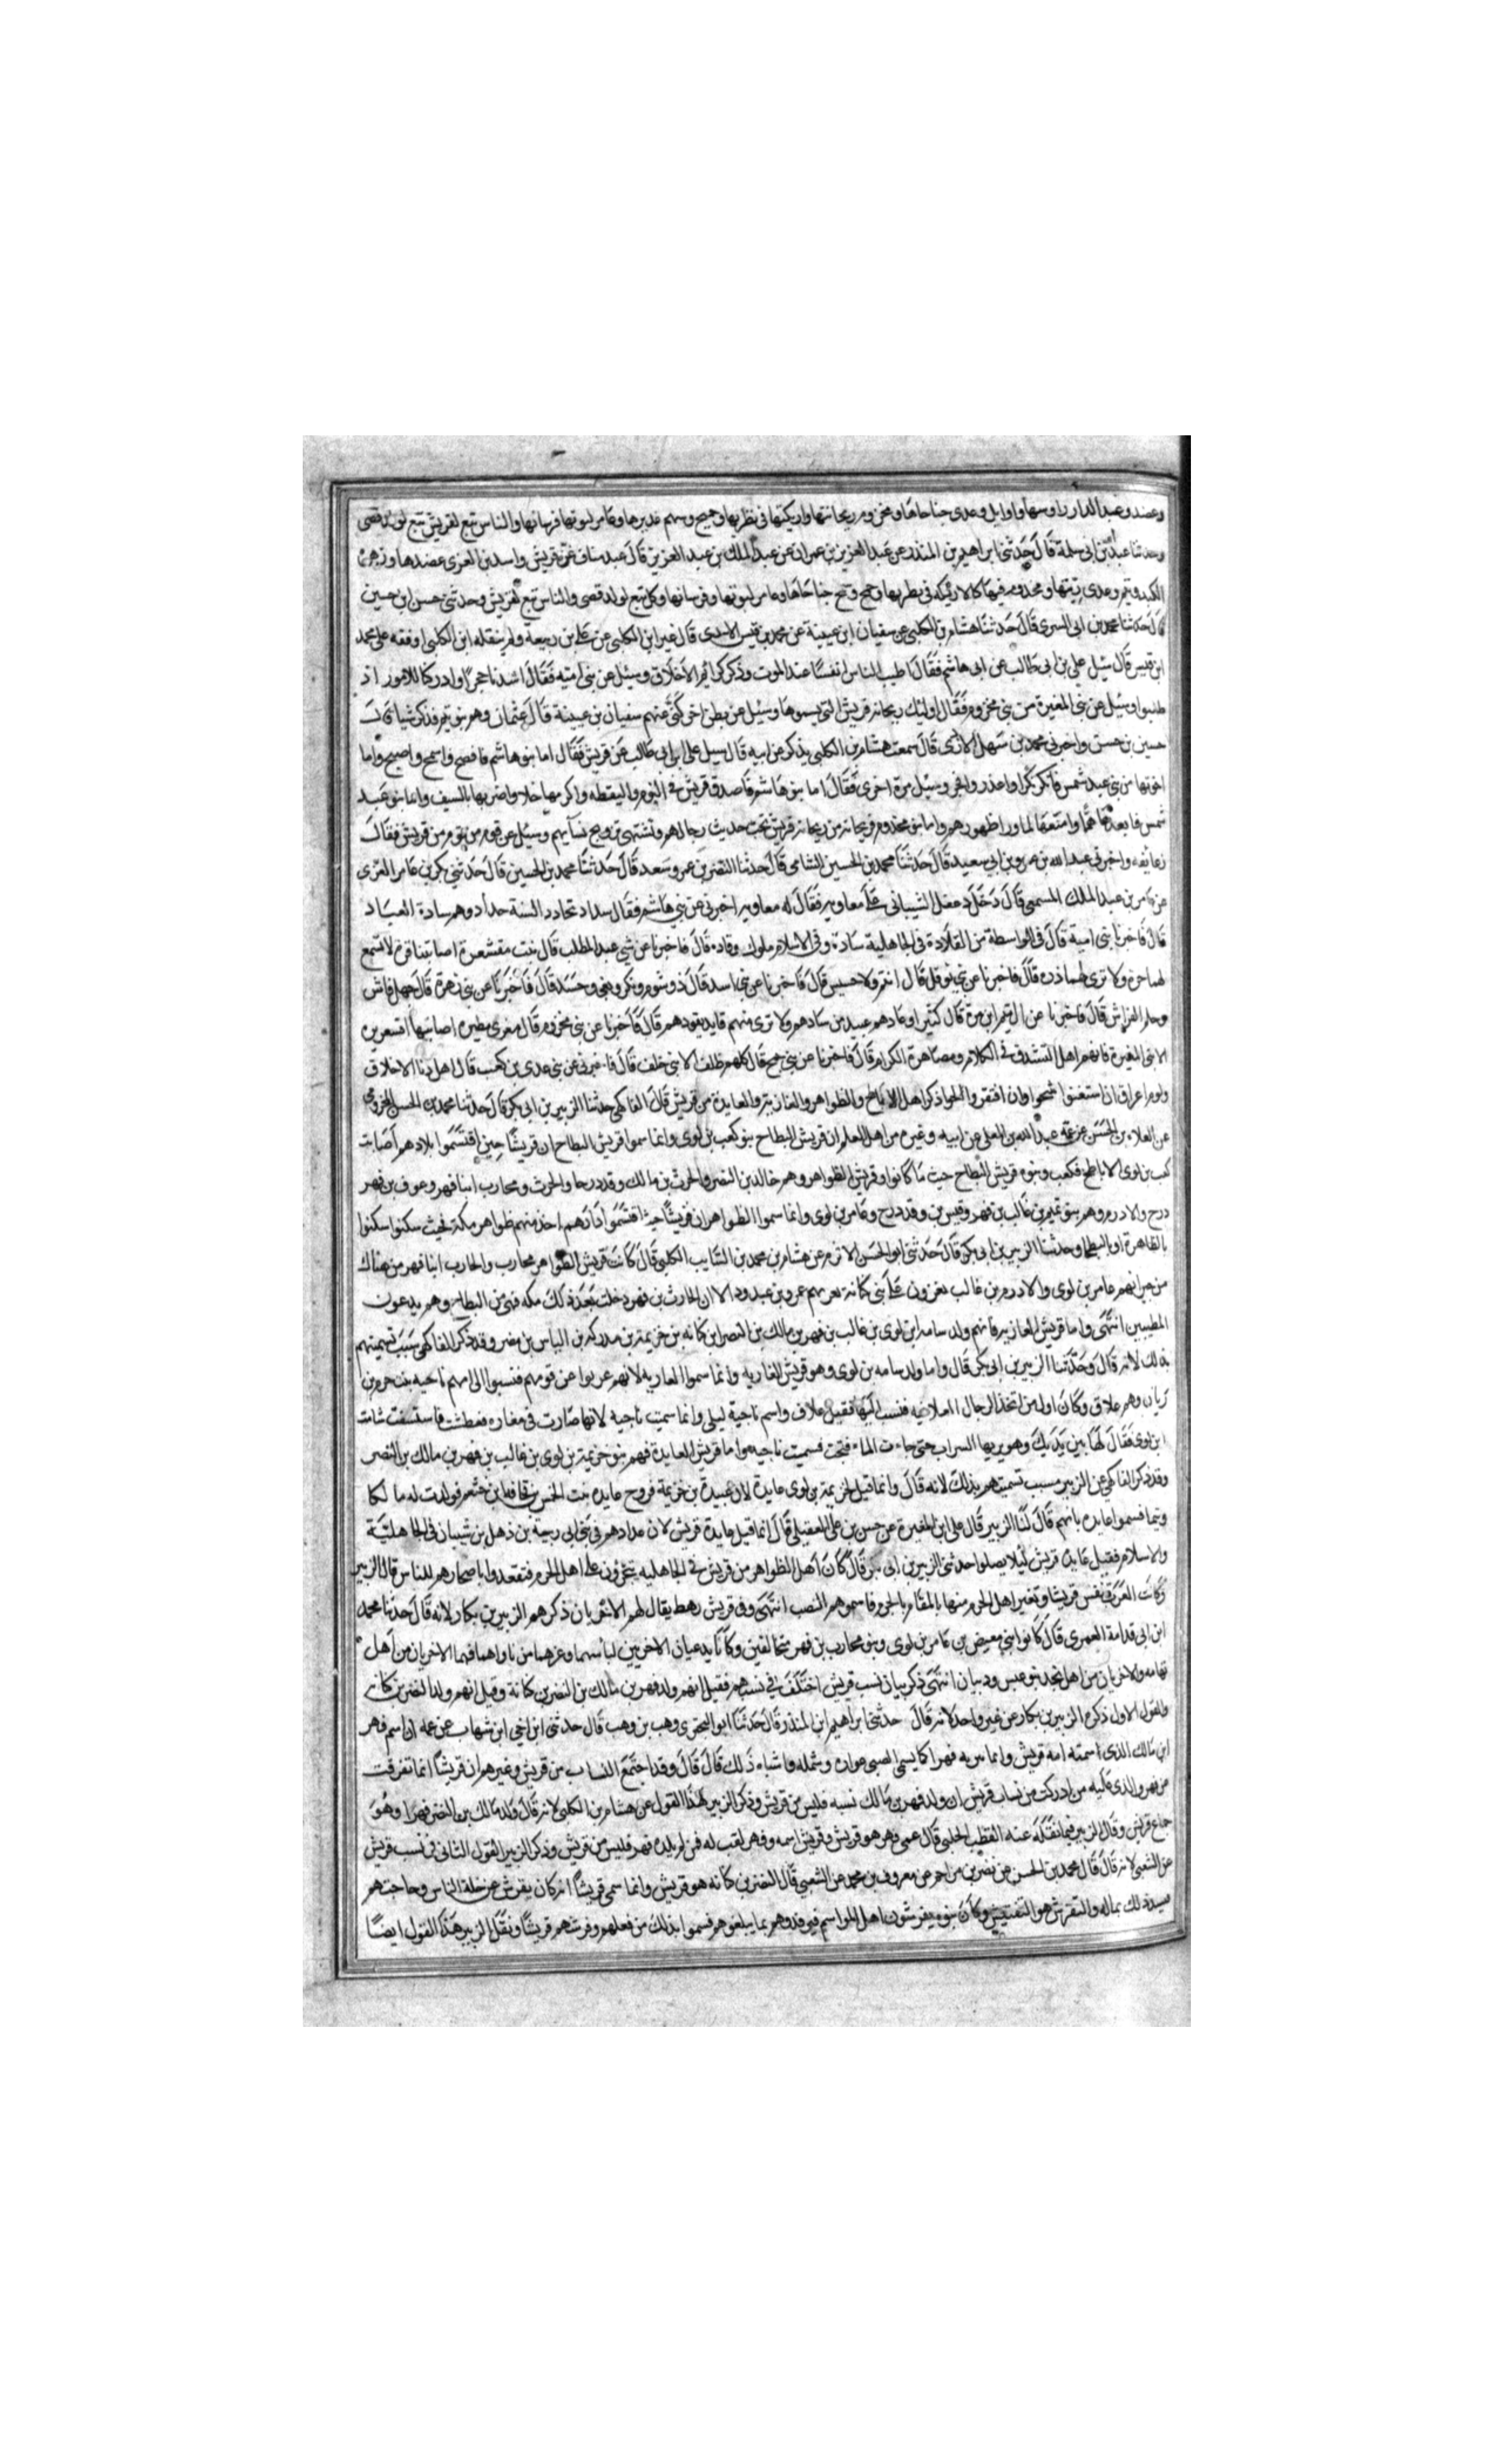 وعضد وعبد الدار راوسها واوايل وعدى جناحاها ومخزوم ريحانتها واريكتها فى نظربها وجمح وسهم عديدها وعامر ليوثها فرسانها والناس تبع لقريش تبع لولد قصى
وحدثنا عبد الله بن ابى سلمة قال حدثنى ابراهيم بن المنذر عن عبد العزيز بن عمران عن عبد الملك بن عبد العزيز قال عبد مناف عز قريش واسد بن العزى عضدها وزهرة
الكبد وتيم وعدى ريتها ومخدوم فيها كالاركه فى بطربها وجمح وسهم جناحاها وعامر ليوثها وفرسانها وكل تبع لولد قصى والناس تبع لقريش وحدثنى حسن ابن حسين
قال حدثنا محمد بن ابى السرى قال حدثنا هشام بن الكلبى عن سفيان ابن عيينة عن محمد بن قيس الاسدى قال غير ابن الكلبى عن على بن ربيعة ولم ينقله ابن الكلبى اوفقه على محمد
ابن قيس قال سيل على بن ابى طالب عن ابى هاشم فقال اطيب الناس انفسا عند الموت وذكر كرائم الاخلاق وسئل عن بنى امية فقال اشدنا حجرا وادركنا للامور اذ
طلبوا وسئل عن بنى المغيرة من بنى مخزوم فقال اوليك ريحانة قريش التى وسئل عن بطن اخر كنى عنهم سفيان بن عيينة قال عثمان وهم بنو تيم فذكر شيا قال
حسين بن حسن واخبرنى محمد بن سهل الازدى قال سمعت هشام بن الكلبى يذكر عن ابيه قال سيل على ابن ابى طالب عن قريش فقال اما بنو هاشم فافصح واسمح واصبح واما
اخوتها من بنى عبد شمس فانكر بكرا واعذر وافجر وسئل مرة اخرى فقال اما بنو هاشم فاصدق قريش فى النوم واليقظه واكرمها اخلاقا واضربها بالسيف واما بنو عبد
شمس فابعدها هما وامنعها لما ورا ظهورهم واما بنو مخدوم فريحانة من ريحانة قريش تحب حديث رجالهم وتشتهى تزويج نسايهم وسئل عن قوم من قوم من قريش فقال
زعانفه واخبرنى عبد الله بن عمرو بن ابى سعيد قال حدثنا محمد بن الحسين الشامى قال حدثنا النضر بن عمرو سعد قال حدثنا محمد بن الحسين قال حدثنى بكر بن عامر العزى
عن عامر بن عبد الملك المسمعى قال دخل دغفل الشيبانى على معاوية فقال له معاوية اخبرنى عن بنى هاشم فقال سداد السنة حداد وهم سادة العباد
قال فاخبرنا بنى امية قال فى الواسطة من القلادة فى الجاهلية سادة وفى الاسلام ملوك وقاده قال فاخبرنا عن بنى عبد المطلب قال بنت مقشعرة اصابتنا لا تسمع
لهما حره ولا ترى لهما ذره قال فاخبرنا عن بنى نوفل قال انتم ولا حسيس قال فاخبرنا عن بنى اسد قال ذو شوم ونكر وبغى وحسد قال فاخبرنا عن بنى زهرة قال جهل فاش
وحلم الفراش قال فاخبرنا عن ال تيم ابن مرة قال كثير اوغادهم عبيد من سادهم ولا ترى منهم قايد يقودهم قال فاخبرنا عن بنى مخزوم قال معزى مطيره اصابتها اقشعريره
الا بنى المغيرة فانهم اهل التشدق فى الكلام ومصاهرة الكرام قال فاخبرنا عن بنى جمح قال كلهم ظلف الا بنى خلف قال فاخبرنى عن بنى عدى بن كعب قال اهل دنا الاخلاق
ولوم اعراق ان استغنوا شحوا وان افتقروا الحوا ذكر اهل الاباطح والظواهر والعازبة والعايدة من قريش قال الفاكهى حدثنا الزبير بن ابى بكر قال حدثنا محمد بن الحسن المخزومى
عن العلاء بن الحسن عن عمه عبد الله بن المعلى عن ابيه وغيره من اهل العلم ان قريش البطاح بنو كعب بن لوى وانما سموا قريش البطاح ان قريشا حين اقتسموا بلادهم اصابت
كعب بن لوى الاباطح فكعب وبنوه قريش البطاح حيث ما كانوا وقريش الظواهر وهم خالد بن النضر والحرث بن مالك وقد درجا والحرث ومحارب ابنا فهر وعوف بن فهر
درج والادرم وهم بنو تيم بن غالب بن فهر وقيس بن وقد درج وعامر بن لوى وانما سموا الظواهر ان قريشا حيث اقتسموا دارهم اخذ منهم ظواهر مكة فحيث سكنوا سكنوا
بالظاهرة او البطحا وحدثنا الزبير بن ابى بكر قال حدثنى ابو الحسن الاثرم عن هشام بن محمد بن السايب الكلبى قال كانت قريش الظواهر محارب والحارب ابنا فهر من هناك
من جيرانهم عامر بن لوى والادرم بن غالب يغزون على بنى كنانة بهم عمرو بن عبد ود الا ان الحارث بن فهر دخلت بعد ذلك مكه فهى من البطاح وهم يدعون
المطيبين انتهى واما قريش العازبه فانهم ولد سامه ابن لوى بن غالب بن فهر بن مالك بن النضر ابن كنانه بن خزيمة بن مدركه بن الياس بن مضر وقد ذكر الفاكهى سبب تسميتهم
بذلك لانه قال وحدثنا الزبير بن ابى بكر قال واما ولد سامه بن لوى وهو قريش العازبه وانما سموا العازبه لانهم عزبوا عن قومهم فنسبوا الى امهم ناجيه بنت جرم بن
زبان وهم علاق وكان اول من اتخذ الرجال العلافيه فنسب اليها فقيل علاف واسم ناجية ليلى وانما سميت ناجيه لانها صارت فى مفازه فعطشت فاستسقت سامة
ابن لوى فقال لها بين يديك وهو يريها السراب حتى جاءت الماء فنجت فسميت ناجيه واما قريش العايدة فهم بنو خزيمة بن لوى بن غالب بن فهر بن مالك بن النضر
وقد ذكر الفاكهى عن الزبير سبب تسميتهم بذلك لانه قال وانما قيل لخزيمة بن لوى عايدة لان عبيدة بن خزيمة تزوج عايده بنت الخمس بن قحافه ابن خثعم فولدت له مالكا
وتيما فسموا عايده بامهم قال لنا الزبير قال على ابن المغيرة عن حسن بن على العقيلى قال انما قيل عايدة قريش لان عدادهم فى بنى ابى ربيعة بن ذهل بن شيبان فى الجاهلية
والاسلام فقيل عايدة قريش ليلا يضلوا حدثنى الزبير بن ابى بكر قال كان اهل الظواهر من قريش فى الجاهليه يتخرون على اهل الحرم فتقعدوا باصحارهم للناس قال الزبير
وكانت العرب نفس قريشا وتغير اهل الحرم منها بالمقام بالحرم فاسموهم النصب انتهى وفى قريش رهط يقال لهم الاثران ذكرهم الزبير بن بكار لانه قال حدثنا محمد
ابن ابى قدامة العمرى قال كانوا بنى معيص بن عامر بن لوى وبنو محارب بن فهر متحالفين وكانا يدعيان الاخربين لباسهما وعزهما من ناواهما فهما الاخربان من اهل
تهامه والاخربان من اهل نجد بنو عبس ودبيان انتهى ذكر بيان نسب قريش اختلف فى نسبهم فقيل انهم ولد فهر بن مالك بن النضر بن كنانة وقيل انهم ولد النضر بن كنانه
والقول الاول ذكره الزبير بن بكار عن غير واحد لانه قال حدثنى ابراهيم ابن المنذر قال حدثنا ابو البحترى وهب بن وهب قال حدثنى ابن اخى ابن شهاب عن عمه ان اسم فهر
ابن مالك الذى اسمته امه قريش وانما نبزته فهرا كما يسمى الصبى غراره وشمله واشباه ذلك قال قال وقد اجتمع النساب من قريش وغيرهم ان قريشا انما تفرقت
من فهر والذى عليه من ادركت من نساب قريش ان ولد فهر بن مالك نسبه فليس من قريش وذكر الزبير لهذا القول عن هشام بن الكلبى لانه قال ولد مالك بن النضر فهرا وهو
جماع قريش وقال الزبير فيما نقله عنه القطب الحلبى قال عمى وهو هو قريش وقريش اسمه وفهر لقب له فمن لم يلده فهر فليس من قريش وذكر الزبير القول الثانى فى نسب قريش
عن الشعبى لانه قال قال محمد بن الحسن عن نضر بن مزاحم عن معروف بن محمد عن الشعبى قال النضر بن كنانه هو قريش وانما سمى قريشا انه كان يقرش عن خلة الناس وحاجتهم
فيسد ذلك بماله والتقرش هو التفتيش وكان بنوه يقرشون اهل المواسم فيرفدوهم بما يبلغوهم فسموا بذلك من فعلهم وقرشهم قريشا ونقل الزبير هذا القول ايضا